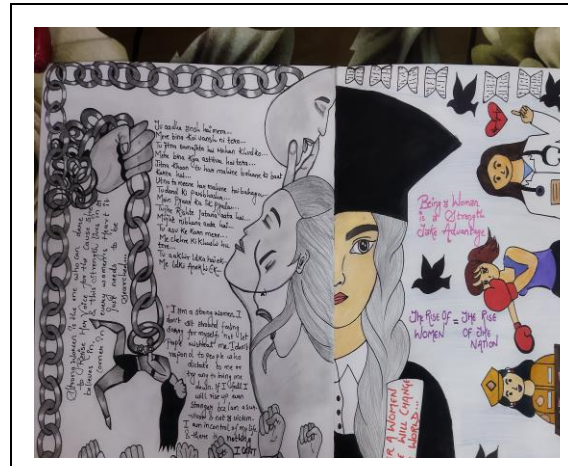 Tu aadha ansh hai mera...
Mere bina koi vansh ni tera...
Tu itna samajhta hai mahan khud ko
Mere bina kya astitva hai tera...
Jitna khoon tu har mahine bahane ki baat
karta hai...
Utna to meine har mahine hai bahaya
Tu dard ki paribhasha...
Main pyaar ka ek pyala...
Tujhe Rishte jatana aata hai...
Mujhe nibhana aata hai...
Tu aasu ke karan mera...
Me chehre ki khushi hu
tera...
Tu aakhir ldka hai ek...
Me ldki Anek hi Ek...
Strong women is the one who can dare
to Raise her voice for the cause she
believes in, & this strength lies in a
corner in every women's Heart it
just needs to be
I am a strong women. I
don't sit around feeling
sorry for myself not let
people mistreat me. I don't
respond to people who
dictate to me or
try any to bring me
down. If I fall I
will rise up even
stronger bcz I am a sur-
vivor & not a victim.
I am in control of my life
& there is nothing
I can't
Being a Woman
is a Strength
Take Advantage
THE RISE OF WOMEN = THE RISE OF THE NATION
A WOMEN
WILL CHANGE
WORLD...